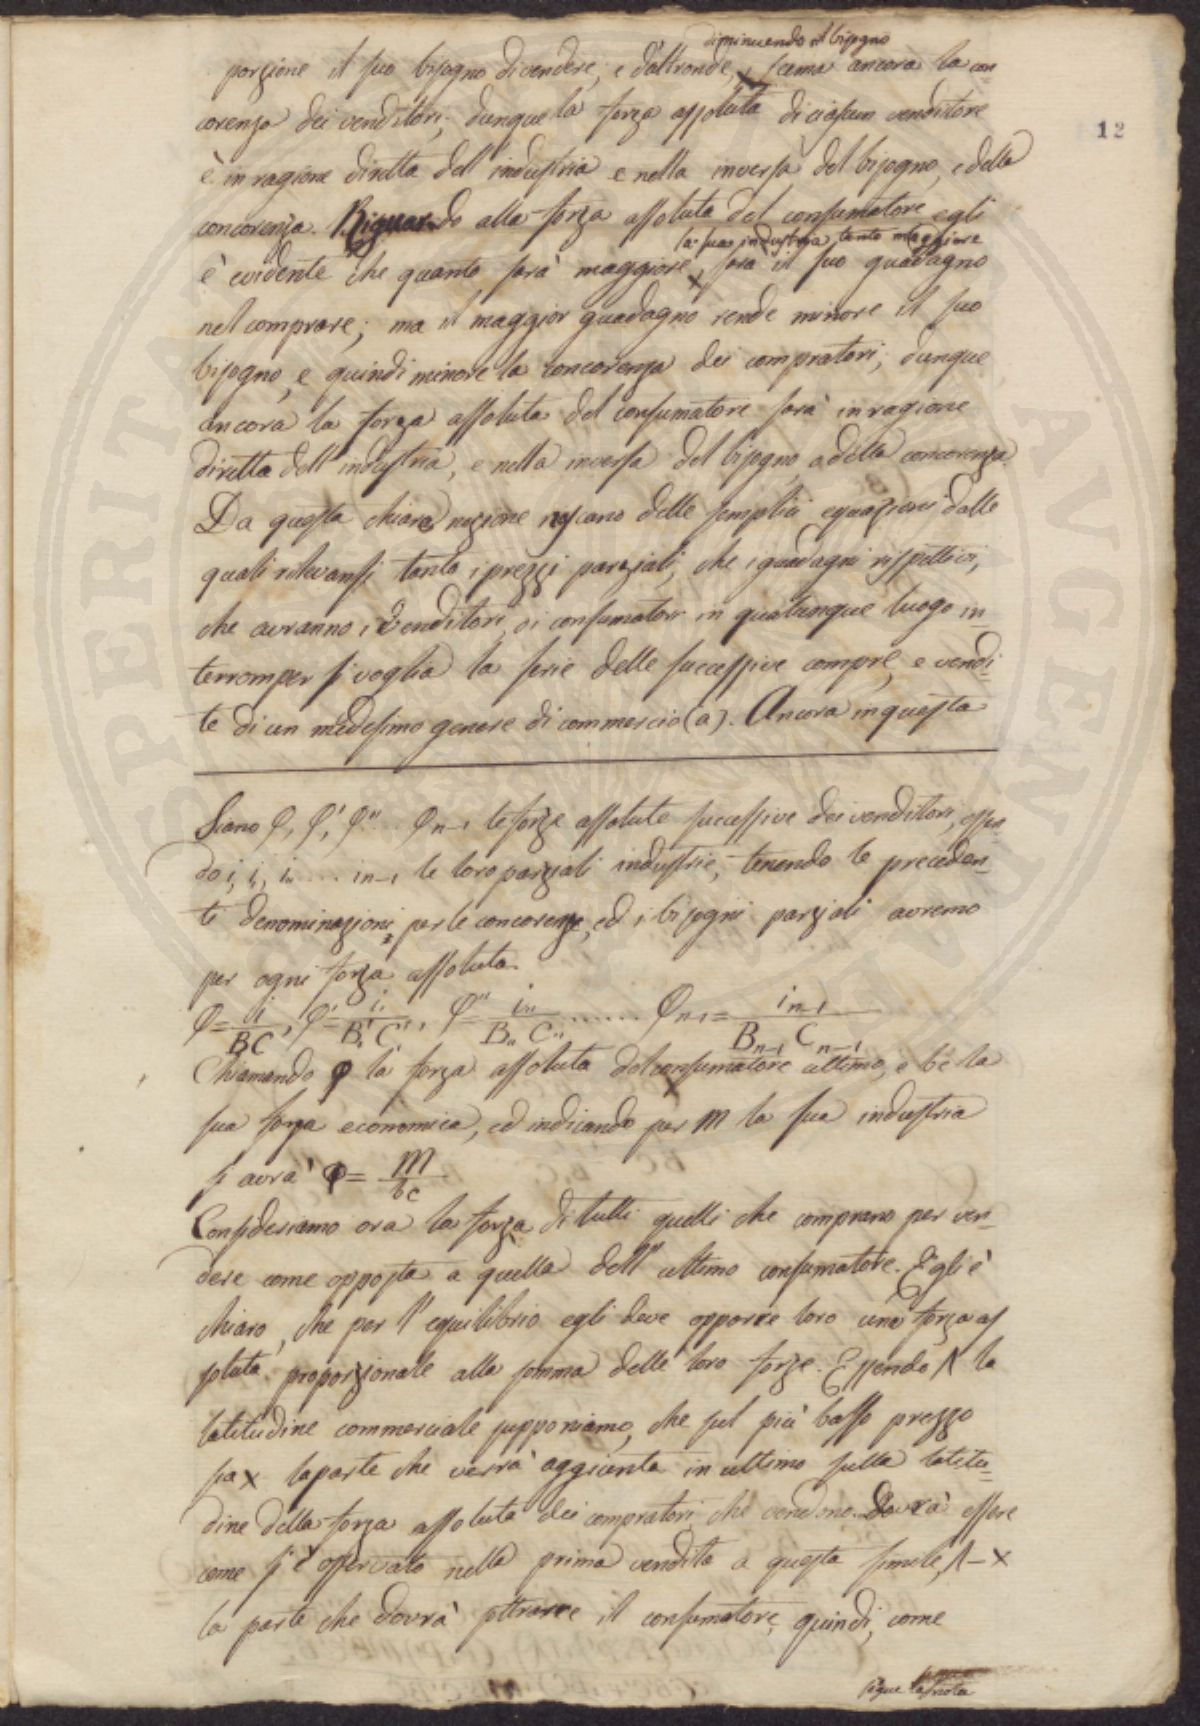 diminuendo il bisogno
porzione il suo bisogno di vendere; e d'altronde, scema ancora la con
corenza dei venditori; dunque la forza assoluta di ciascun venditore
è in ragione diretta dell'industria e nella inversa del bisogno, e della
concorenza. Riguardo alla forza assoluta del consumatore egli
la sua industria, tanto maggiore
è evidente che quanto sarà maggiore, sarà il suo guadagno
nel comprare; ma il maggior guadagno rende minore il suo
bisogno, e quindi minore la concorenza dei compratori; dunque
ancora la forza assoluta del consumatore sarà in ragione
diretta dell'industria, e nella inversa del bisogno, e della concorenza.
Da questa chiara nozione nascano delle semplici equazioni dalle
quali rilevansi tanto i prezzi parziali, che i guadagni rispettivi,
che avranno i venditori, o i consumatori in qualunque luogo in-
terromper si voglia la serie delle successive compre, e vendi-
te di un medesimo genere di commercio (a). Ancora in questa
Siano φ, φ', φ''.... φn-1 le forze assolute successive dei venditori, essen-
do i, i, i, ..... in-1 le loro parziali industrie, tenendo le preceden-
ti denominazioni per le concorenze, ed i bisogni parziali avremo
per ogni forza assoluta
φ = i/BC, φ' = i,/B,C,, φ'' = i,,/B,,C,, ...... φn-1 = in-1/Bn-1 Cn-1
Chiamando φ la forza assoluta del consumatore ultimo, e bc la
sua forza economica, ed indicando per m la sua industria
si avrà φ = m/bc
Consideriamo ora la forza di tutti quelli che comprano per ven-
dere come opposta a quella dell'ultimo consumatore. Egli è
chiaro, che per l'equilibrio egli deve opporre loro una forza as
soluta proporzionale alla somma delle loro forze. Essendo Λ la
latitudine commerciale supponiamo, che sul più basso prezzo
sia x la parte che verrà aggiunta in ultimo sulla latitu-
dine della forza assoluta dei compratori che vendono. Dovrà essere
come s'è osservato nella prima vendita a questa simile, Λ-x
la parte che dovrà sottrarre il consumatore; quindi, come
segue la nota
12
SPERITAT
AVGENT